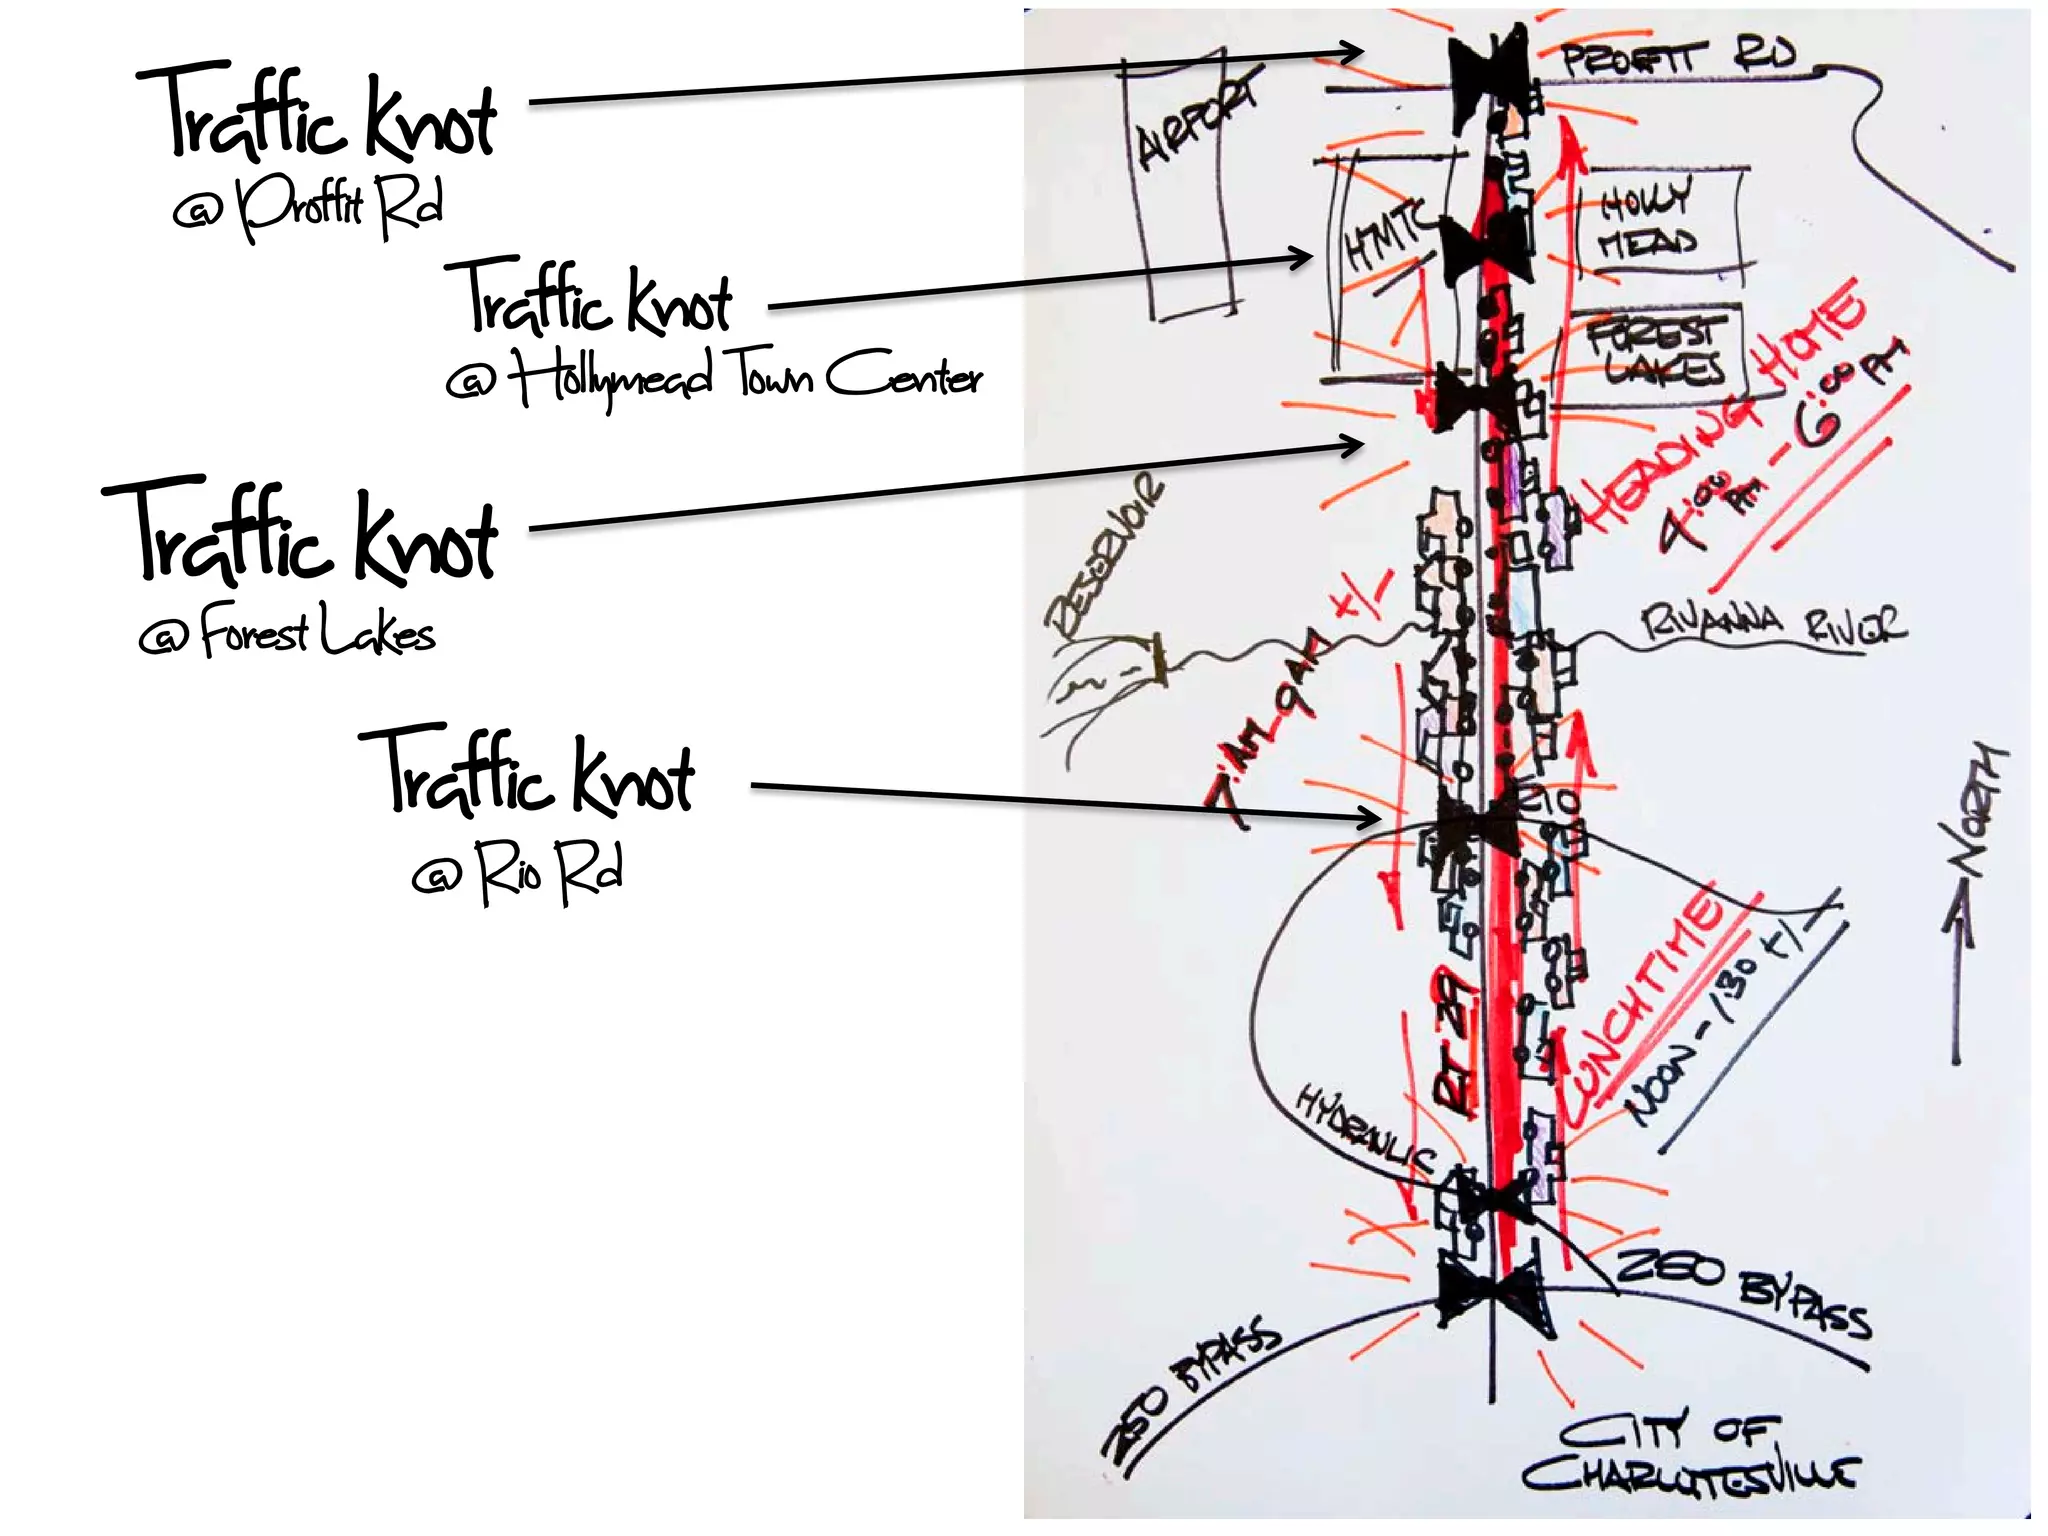 Traffic Knot
@ Proffit Rd
Traffic Knot
@ Hollymead Town Center
Traffic Knot
@ Forest Lakes
Traffic Knot
@ Rio Rd
PROFIT RD
AIRPORT
HMTC
HOLLY
MEAD
FOREST
LAKES
HEADING HOME
4:00 PM - 6:00 PM
RESERVOIR
RIVANNA RIVER
7:AM - 9 AM +/-
RIO
NORTH
LUNCHTIME
NOON - 130 +/-
RT 29
HYDRAULIC
250 BYPASS
250 BYPASS
CITY OF
CHARLOTTESVILLE